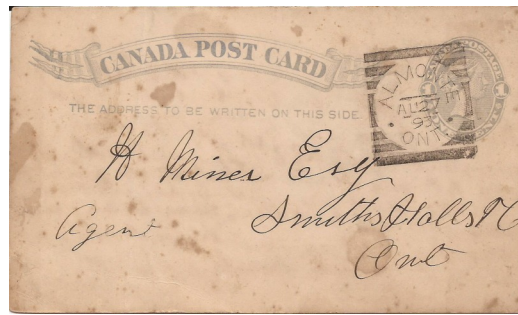 CANADA POST CARD
THE ADDRESS TO BE WRITTEN ON THIS SIDE.
ALMONTE
AU 27
93
ONT
H Miner Esq
Agent
Smiths Falls
Ont